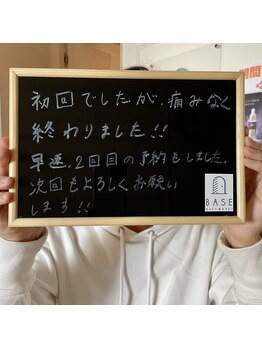 初回でしたが、痛みなく
終わりました!!
早速、2回目の予約もしました。
次回もよろしくお願い
します!!
BASE